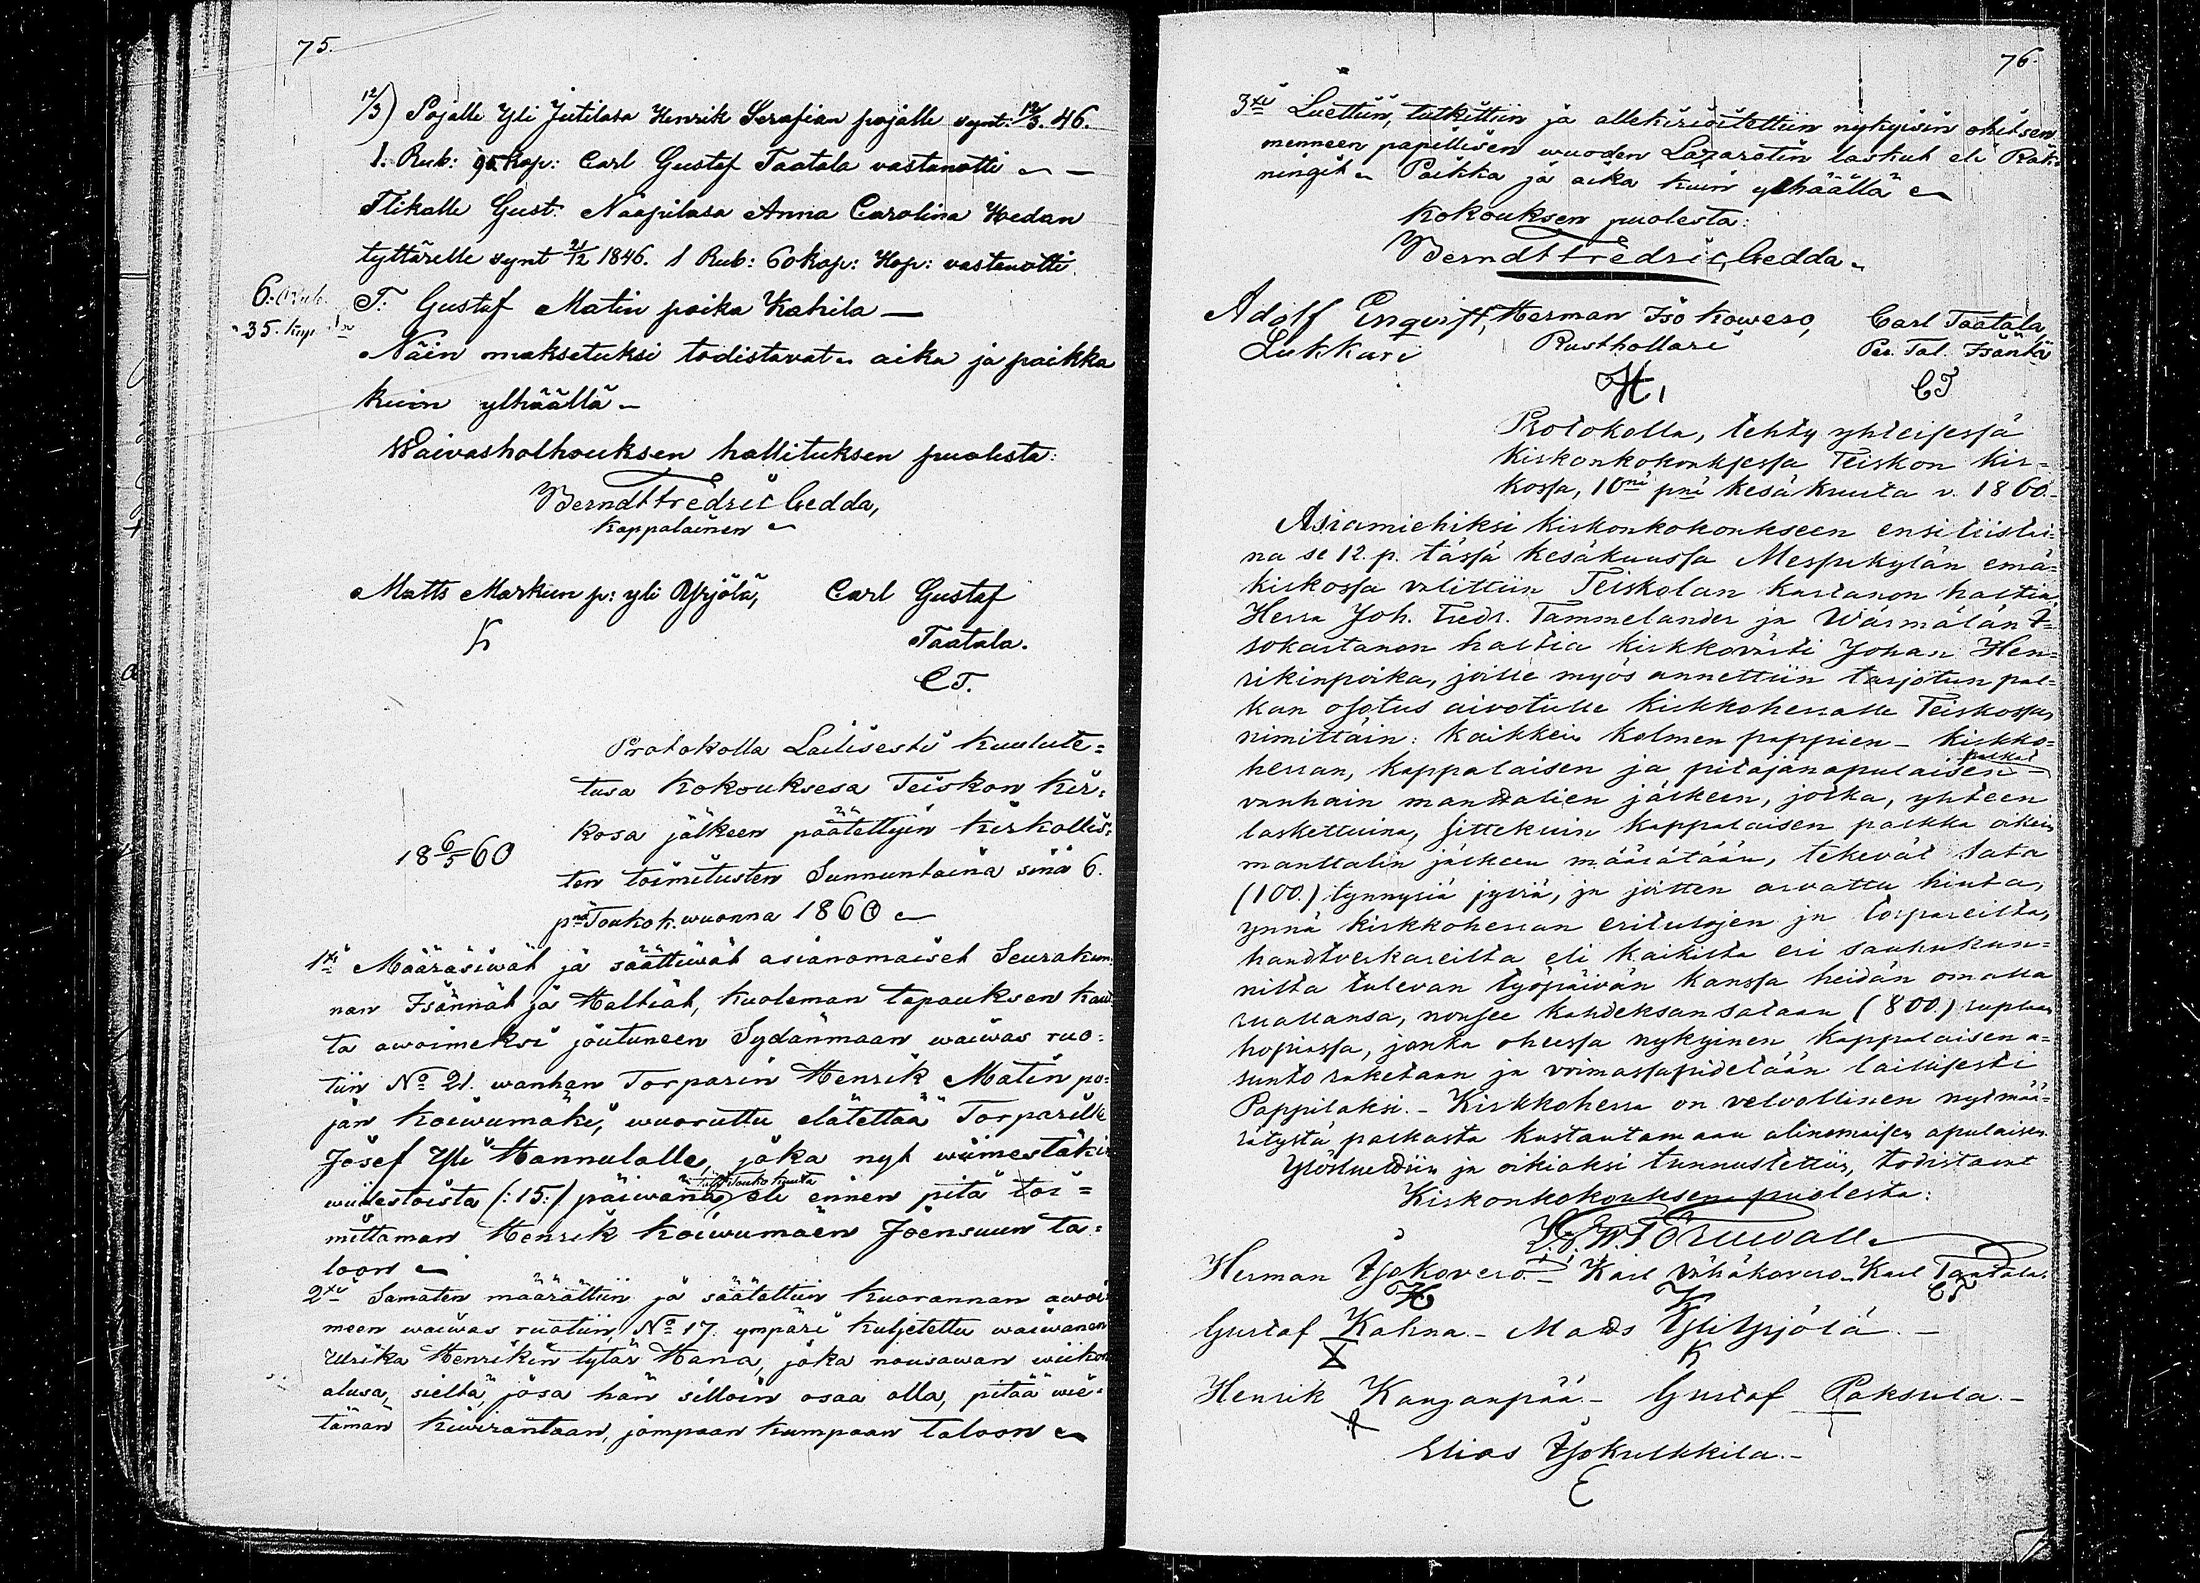 75.
12/3) Pojalle Yli Jutilasa Henrik Serafian pojalle synt: 12/3. 46.
1. Rub: 95 Kop: Carl Gustaf Taatala vastanotti
Flikalle Gust. Naapilasa Anna Carolina Hedan
tyttärelle synt 21/12 1846. 1 Rub: 60 Kop: Hop: vastanotti
6: Rub.
35. Kop
T. Gustaf Matin poika Kahila —
Näin maksetuksi todistavat aika ja paikka
kuin ylhäällä —
Waivasholhouksen hallituksen puolesta:
Berndt Fredric Gedda,
Kappalainen
Matts Markun p: yli Yrjölä, Carl Gustaf
Taatala.
CT.
Protokolla Lailisesti kuulute=
tusa Kokouksesa Teiskon kir=
kosa jälkeen päätettyin kirkollis=
ten toimitusten Sunnuntaina sinä 6.
18 6/5 60
pnä Toukok. wuonna 1860
1xi Määräsiwät ja säättiwät asianomaiset Seurakun=
nan Isännät ja Haltiat, kuoleman tapauksen kaut
ta awoimeksi joutuneen Sydänmaan waiwas ruo=
tiin No 21. wanhan Torparin Henrik Matin po=
jan Koiwumäki, wuoruttu elätettää Torparille
Josef Yli Hannulalle, joka nyt wiimestäkin
wiidestoista (:15:) päiwänä Toukokuuta eli ennen pitä toi=
mittaman Henrik Koiwumäen Joensuun ta=
loon
2xi Samaten määrättiin ja säätettiin kuorannan awoi
meen waiwas ruotiin, No 17. ympäri kuljetettu waiwanen
Ulrika Henrikin tytär Hana, joka nousawan wiikon
alusa, sieltä, josa hän silloin osaa olla, pitää wie=
tämän Kiwirantaan, jompaan kumpaan taloon
76.
3xi Luettiin, tutkittiin ja allekirioitettiin nykyisin ohitsen
menneen papillisen wuoden Lazaretin laskut eli Räk=
ningit Paikka ja aika kuin ylhäällä
Kokouksen puolesta:
Berndt Fredric Gedda
Adolf Enqvist, Herman Iso Kowero, Carl Taatala
Lukkari Rusthollari Per. Tal. Isäntä
H, CT
Protokolla, tehty yhteisessä
Kirkonkokouksessa Teiskon kir=
kossa, 10ni pni kesäkuuta v. 1860.
Asiamiehiksi kirkonkokoukseen ensi tiistai=
na se 12. p. tässä kesäkuussa Messukylän emä=
kirkossa valittiin Teiskolan kartanon haltia,
Herra Joh. Fredr. Tammelander ja Wärmälän I=
sokartanon haltia kirkkoväärti Johan Hen=
rikinpoika, joille myös annettiin tarjotun pal=
kan osotus aivotulle kirkkoherralle Teiskossa,
nimittäin: kaikkein kolmen pappien — kirkko=
herran, kappalaisen ja pitäjänapulaisen palkat
vanhain manttalien jälkeen, jotka, yhteen
laskettuina, sittekuin kappalaisen palkka oikein
manttalin jälkeen määrätään, tekevät sata
(100.) tynnyriä jyviä, ja joitten arvattu hinta,
ynnä kirkkoherran eritulojen ja torpareilta,
handtverkareilta eli kaikista eri saukukun=
nilta tulevan työpäivän kanssa heidän omalla
ruallansa, nousee kahdeksan sataan (800.) ruplaan
hopiassa, jonka ohessa nykyinen kappalaisen a=
sunto raketaan ja voimassapidetään laillisesti
Pappilaksi. — Kirkkoherra on velvollinen nytmää=
rätystä palkasta kustantamaan alinomaisen apulaisen.
Ylösluettiin ja oikiaksi tunnustettiin, todistavat
Kirkonkokouksen puolesta:
Herman Isokovero — Karl Vähäkovero — Karl Taatala
H K CT
Gustaf Kahna — Mats Yliyrjölä —
X K
Henrik Kanganpää — Gustaf Paksula —
Elias Isokulkkila —
E